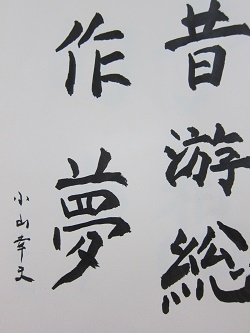 昔游総
作夢
小山幸文